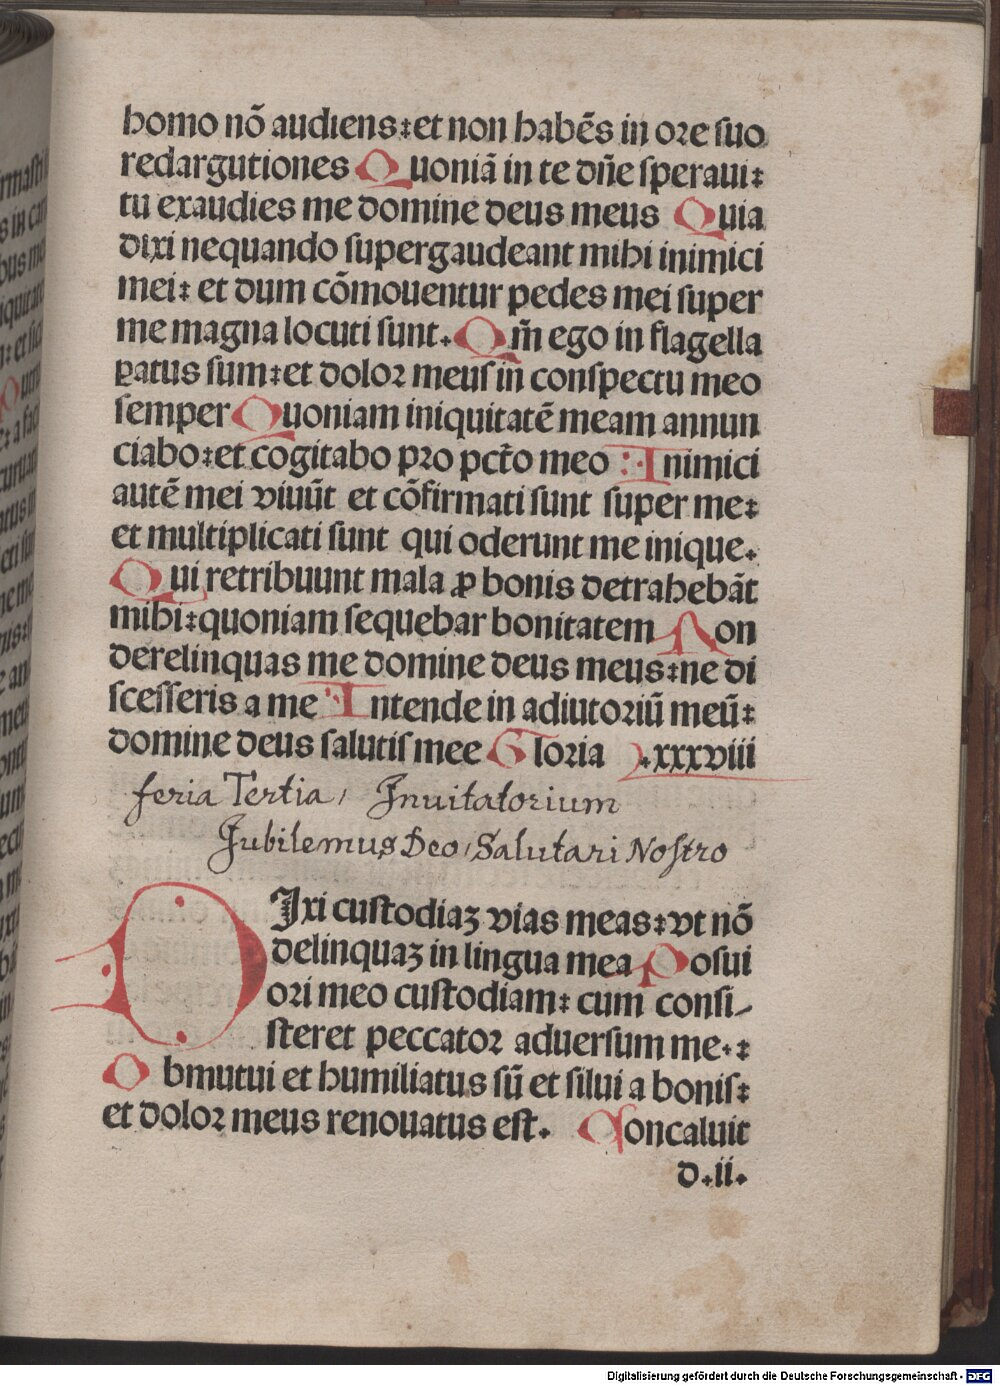 homo nō audiens: et non habēs in ore suo
redargutiones Quoniā in te dñe speraui:
tu exaudies me domine deus meus Quia
dixi nequando supergaudeant mihi inimici
mei: et dum cōmouentur pedes mei super
me magna locuti sunt. Qm̄ ego in flagella
ꝑatus sum: et dolor meus in cōnspectu meo
semper Quoniam iniquitatē meam annun
ciabo: et cogitabo pro pct̄o meo Inimici
autē mei viuūt et cōfirmati sunt super me:
et multiplicati sunt qui oderunt me inique.
Qui retribuunt mala ꝓ bonis detrahebāt
mihi: quoniam sequebar bonitatem Non
derelinquas me domine deus meus: ne di
scesseris a me Intende in adiutoriū meū:
domine deus salutis mee Gloria .xxxviii
feria Tertia, Inuitatorium
Jubilemus Deo, Salutari Nostro
DIxi custodiaꝫ vias meas: vt nō
delinquaꝫ in lingua mea Posui
ori meo custodiam: cum consi-
steret peccator aduersum me.:
Obmutui et humiliatus sū et silui a bonis:
et dolor meus renouatus est. Concaluit
d.ii.
Digitalisierung gefördert durch die Deutsche Forschungsgemeinschaft - DFG